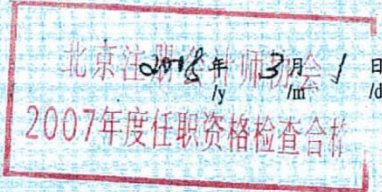 北京注册会计师协会
年 3 月 1 日
/y /m /d
2007年度任职资格检查合格